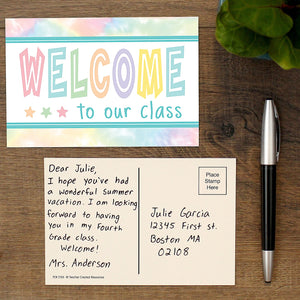 WELCOME
to our class
Dear Julie,
I hope you've had
a wonderful summer
vacation. I am looking
forward to having
you in my Fourth
Grade class.
Welcome!
Mrs. Anderson
Place
Stamp
Here
Julie Garcia
12345 First St.
Boston MA
02108
© Teacher Created Resources